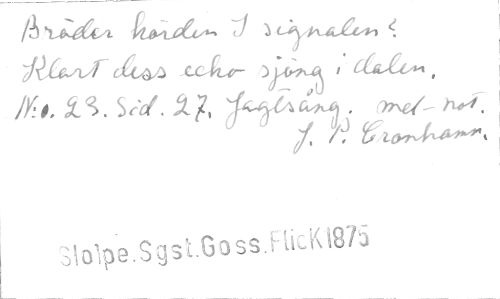 Bröder hörden I signalen?
Klart dess echo sjöng i dalen.
N:o. 23. Sid. 27. Jagtsång. mel-not.
J. P. Cronhamn.
Stolpe.Sgst.Goss.Flick1875